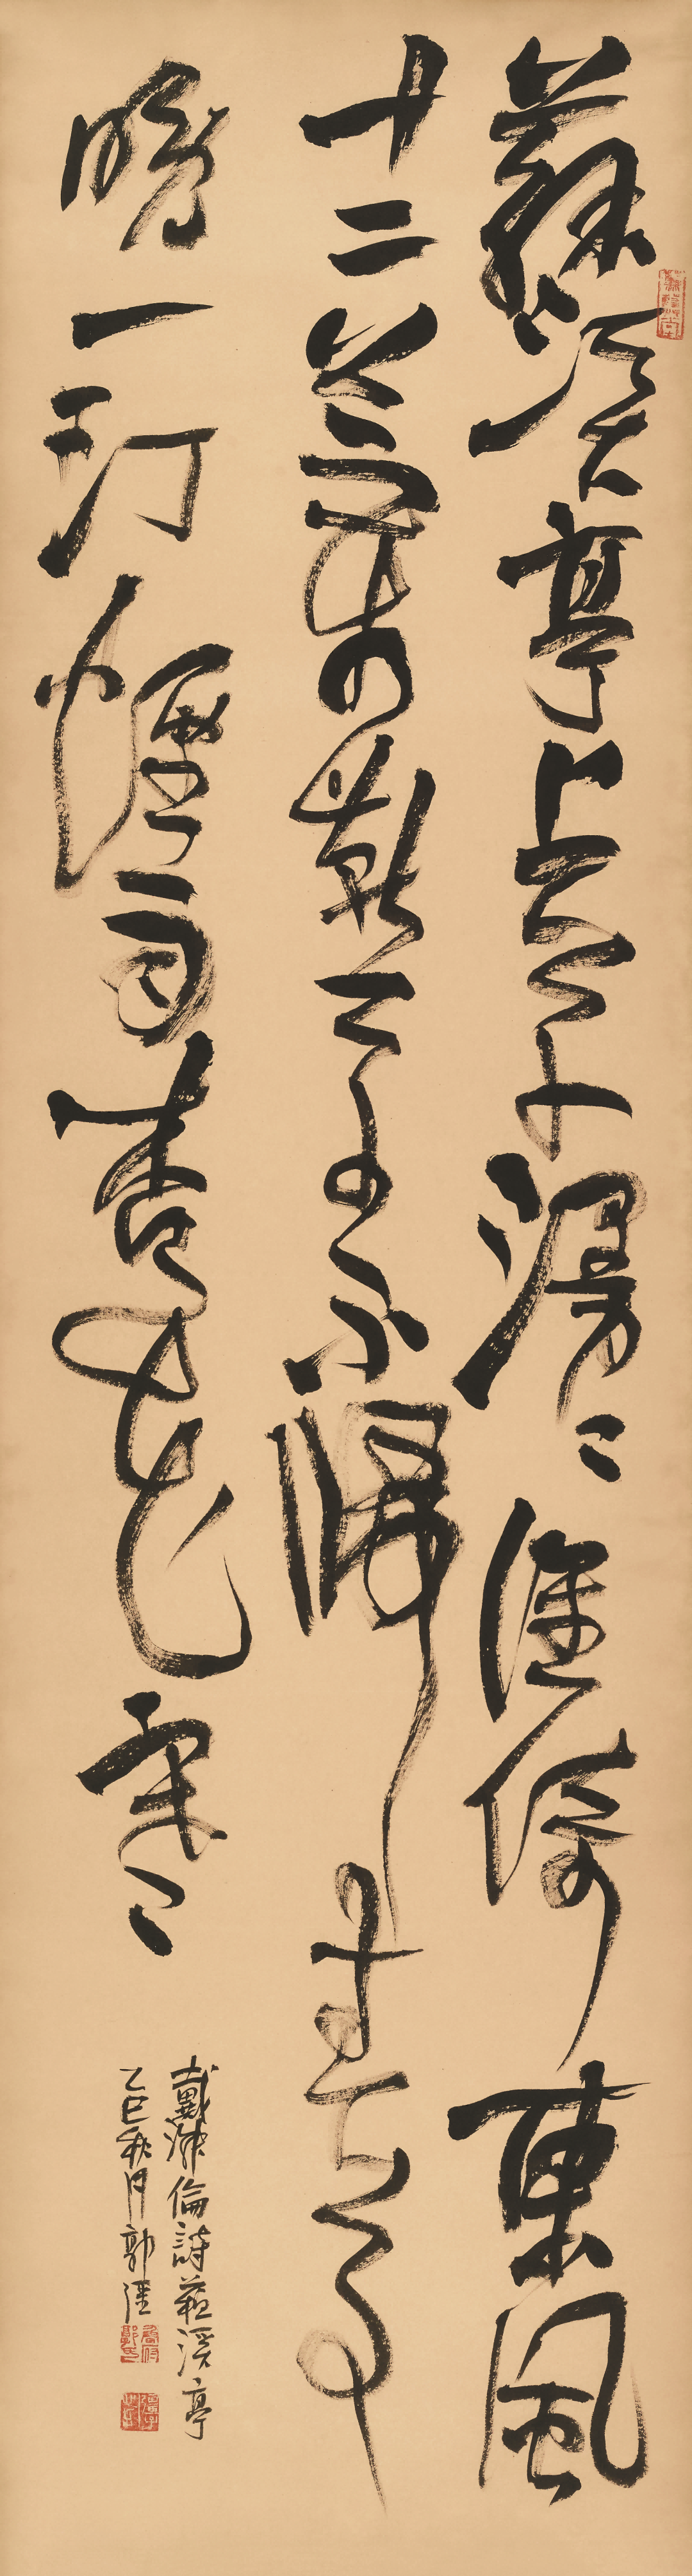 蘇溪亭上草漫漫誰倚東風
十二闌燕子不歸春事
晚一汀煙雨杏花寒
戴叔倫詩蘇溪亭
乙巳秋月郭